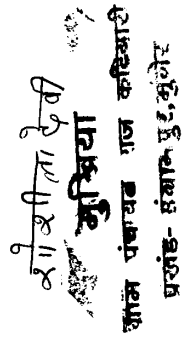 शोशीला देवी
मुखिया
ग्राम पंचायत राज कटियारी
प्रखंड- संग्रामपुर, मुंगेर